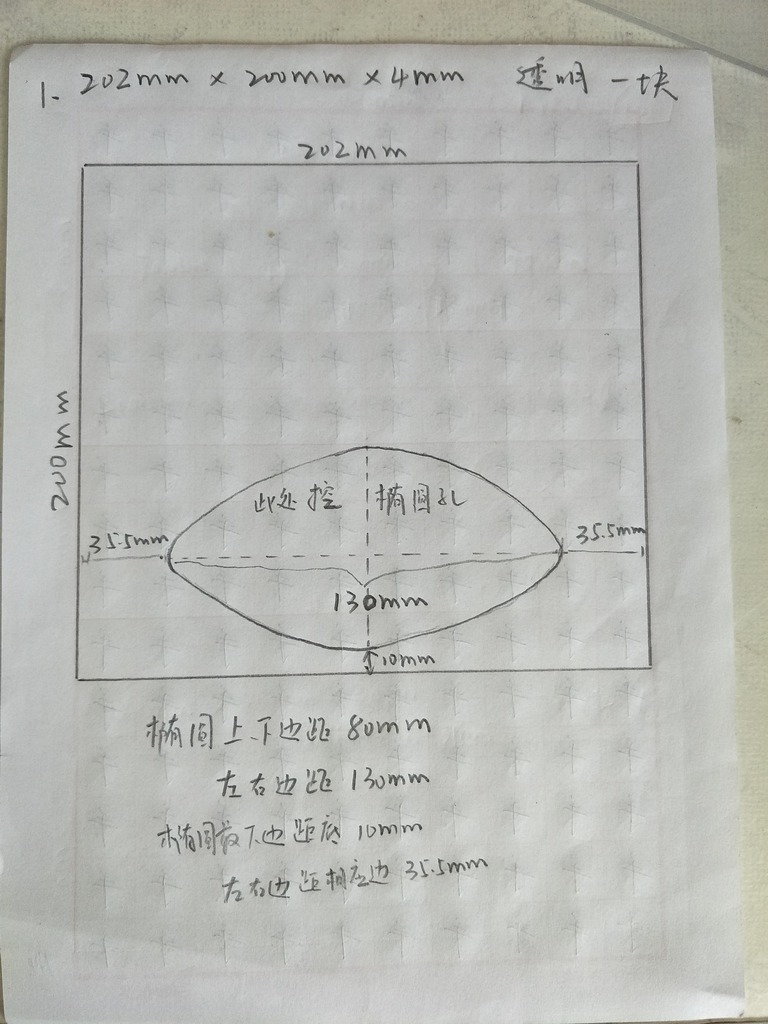 1. 202mm × 200mm × 4mm 透明 一块
202mm
200mm
此处控 椭圆孔
35.5mm
35.5mm
130mm
10mm
椭圆上下边距 80mm
左右边距 130mm
椭圆最下边距底 10mm
左右边距相应边 35.5mm